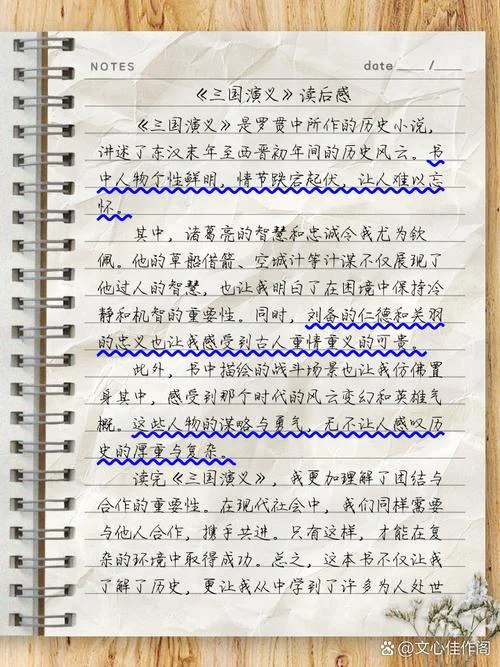 NOTES
date ____ / ____
《三国演义》读后感
《三国演义》是罗贯中所作的历史小说,
讲述了东汉末年至西晋初年间的历史风云。书
中人物个性鲜明,情节跌宕起伏,让人难以忘
怀。
其中,诸葛亮的智慧和忠诚令我尤为钦
佩。他的草船借箭、空城计等计谋不仅展现了
他过人的智慧,也让我明白了在困境中保持冷
静和机智的重要性。同时,刘备的仁德和关羽
的忠义也让我感受到古人重情重义的可贵。
此外,书中描绘的战斗场景也让我仿佛置
身其中,感受到那个时代的风云变幻和英雄气
概。这些人物的谋略与勇气,无不让人感叹历
史的厚重与复杂。
读完《三国演义》,我更加理解了团结与
合作的重要性。在现代社会中,我们同样需要
与他人合作,携手共进。只有这样,才能在复
杂的环境中取得成功。总之,这本书不仅让我
了解了历史,更让我从中学到了许多为人处世
文心佳作阁